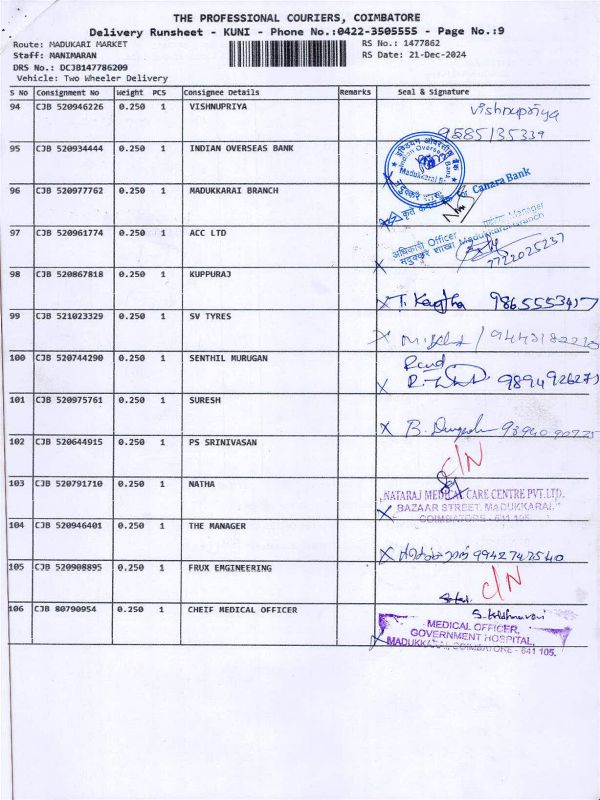 THE PROFESSIONAL COURIERS, COIMBATORE
Delivery Runsheet - KUNI - Phone No.:0422-3505555 - Page No.:9
Route: MADUKARI MARKET RS No.: 1477862
Staff: MANIMARAN RS Date: 21-Dec-2024
DRS No.: DCJB147786209
Vehicle: Two Wheeler Delivery
S No Consignment No Weight PCS Consignee Details Remarks Seal & Signature
94 CJB 520946226 0.250 1 VISHNUPRIYA Vishnupriya
9585135339
95 CJB 520934444 0.250 1 INDIAN OVERSEAS BANK
Indian Overseas Bank
Madukkarai Br.
96 CJB 520977762 0.250 1 MADUKKARAI BRANCH
कृते केनरा बैंक For Canara Bank
97 CJB 520961774 0.250 1 ACC LTD
अधिकारी Officer Manager
मदुक्करै शाखा Madukkarai Branch
7722025237
98 CJB 520867818 0.250 1 KUPPURAJ
99 CJB 521023329 0.250 1 SV TYRES
100 CJB 520744290 0.250 1 SENTHIL MURUGAN
101 CJB 520975761 0.250 1 SURESH
102 CJB 520644915 0.250 1 PS SRINIVASAN C/N
103 CJB 520791710 0.250 1 NATHA
NATARAJ MEDICAL CARE CENTRE PVT.LTD.
BAZAAR STREET, MADUKKARAI,
COIMBATORE - 641 105
104 CJB 520946401 0.250 1 THE MANAGER 9942747540
105 CJB 520908895 0.250 1 FRUX EMGINEERING C/N
106 CJB 80790954 0.250 1 CHEIF MEDICAL OFFICER
MEDICAL OFFICER,
GOVERNMENT HOSPITAL,
MADUKKARAI, COIMBATORE - 641 105.